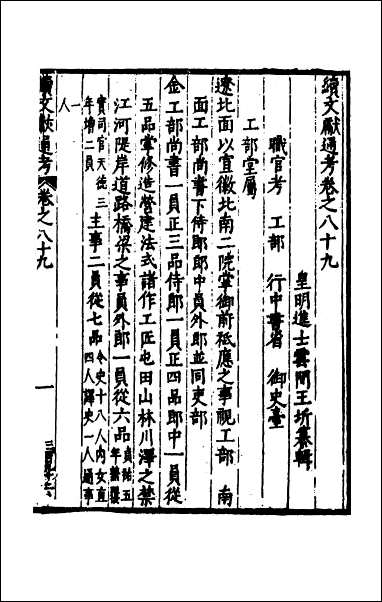 續文獻通考卷之八十九
皇明進士雲間王圻纂輯
職官考　工部　行中書省　御史臺
工部堂屬
遼北面以宣徽北南二院掌御前祗應之事視工部　南
面工部尚書下侍郎郎中員外郎並同吏部
金工部尚書一員正三品侍郎一員正四品郎中一員從
五品掌修造營建法式諸作工匠屯田山林川澤之禁
江河隄岸道路橋梁之事員外郎一員從六品貞祐五年兼覆
實司官天德三年增二員主事二員從七品令史十八人內女直四人譯史一人通事
一人
續文獻通考　卷之八十九　一